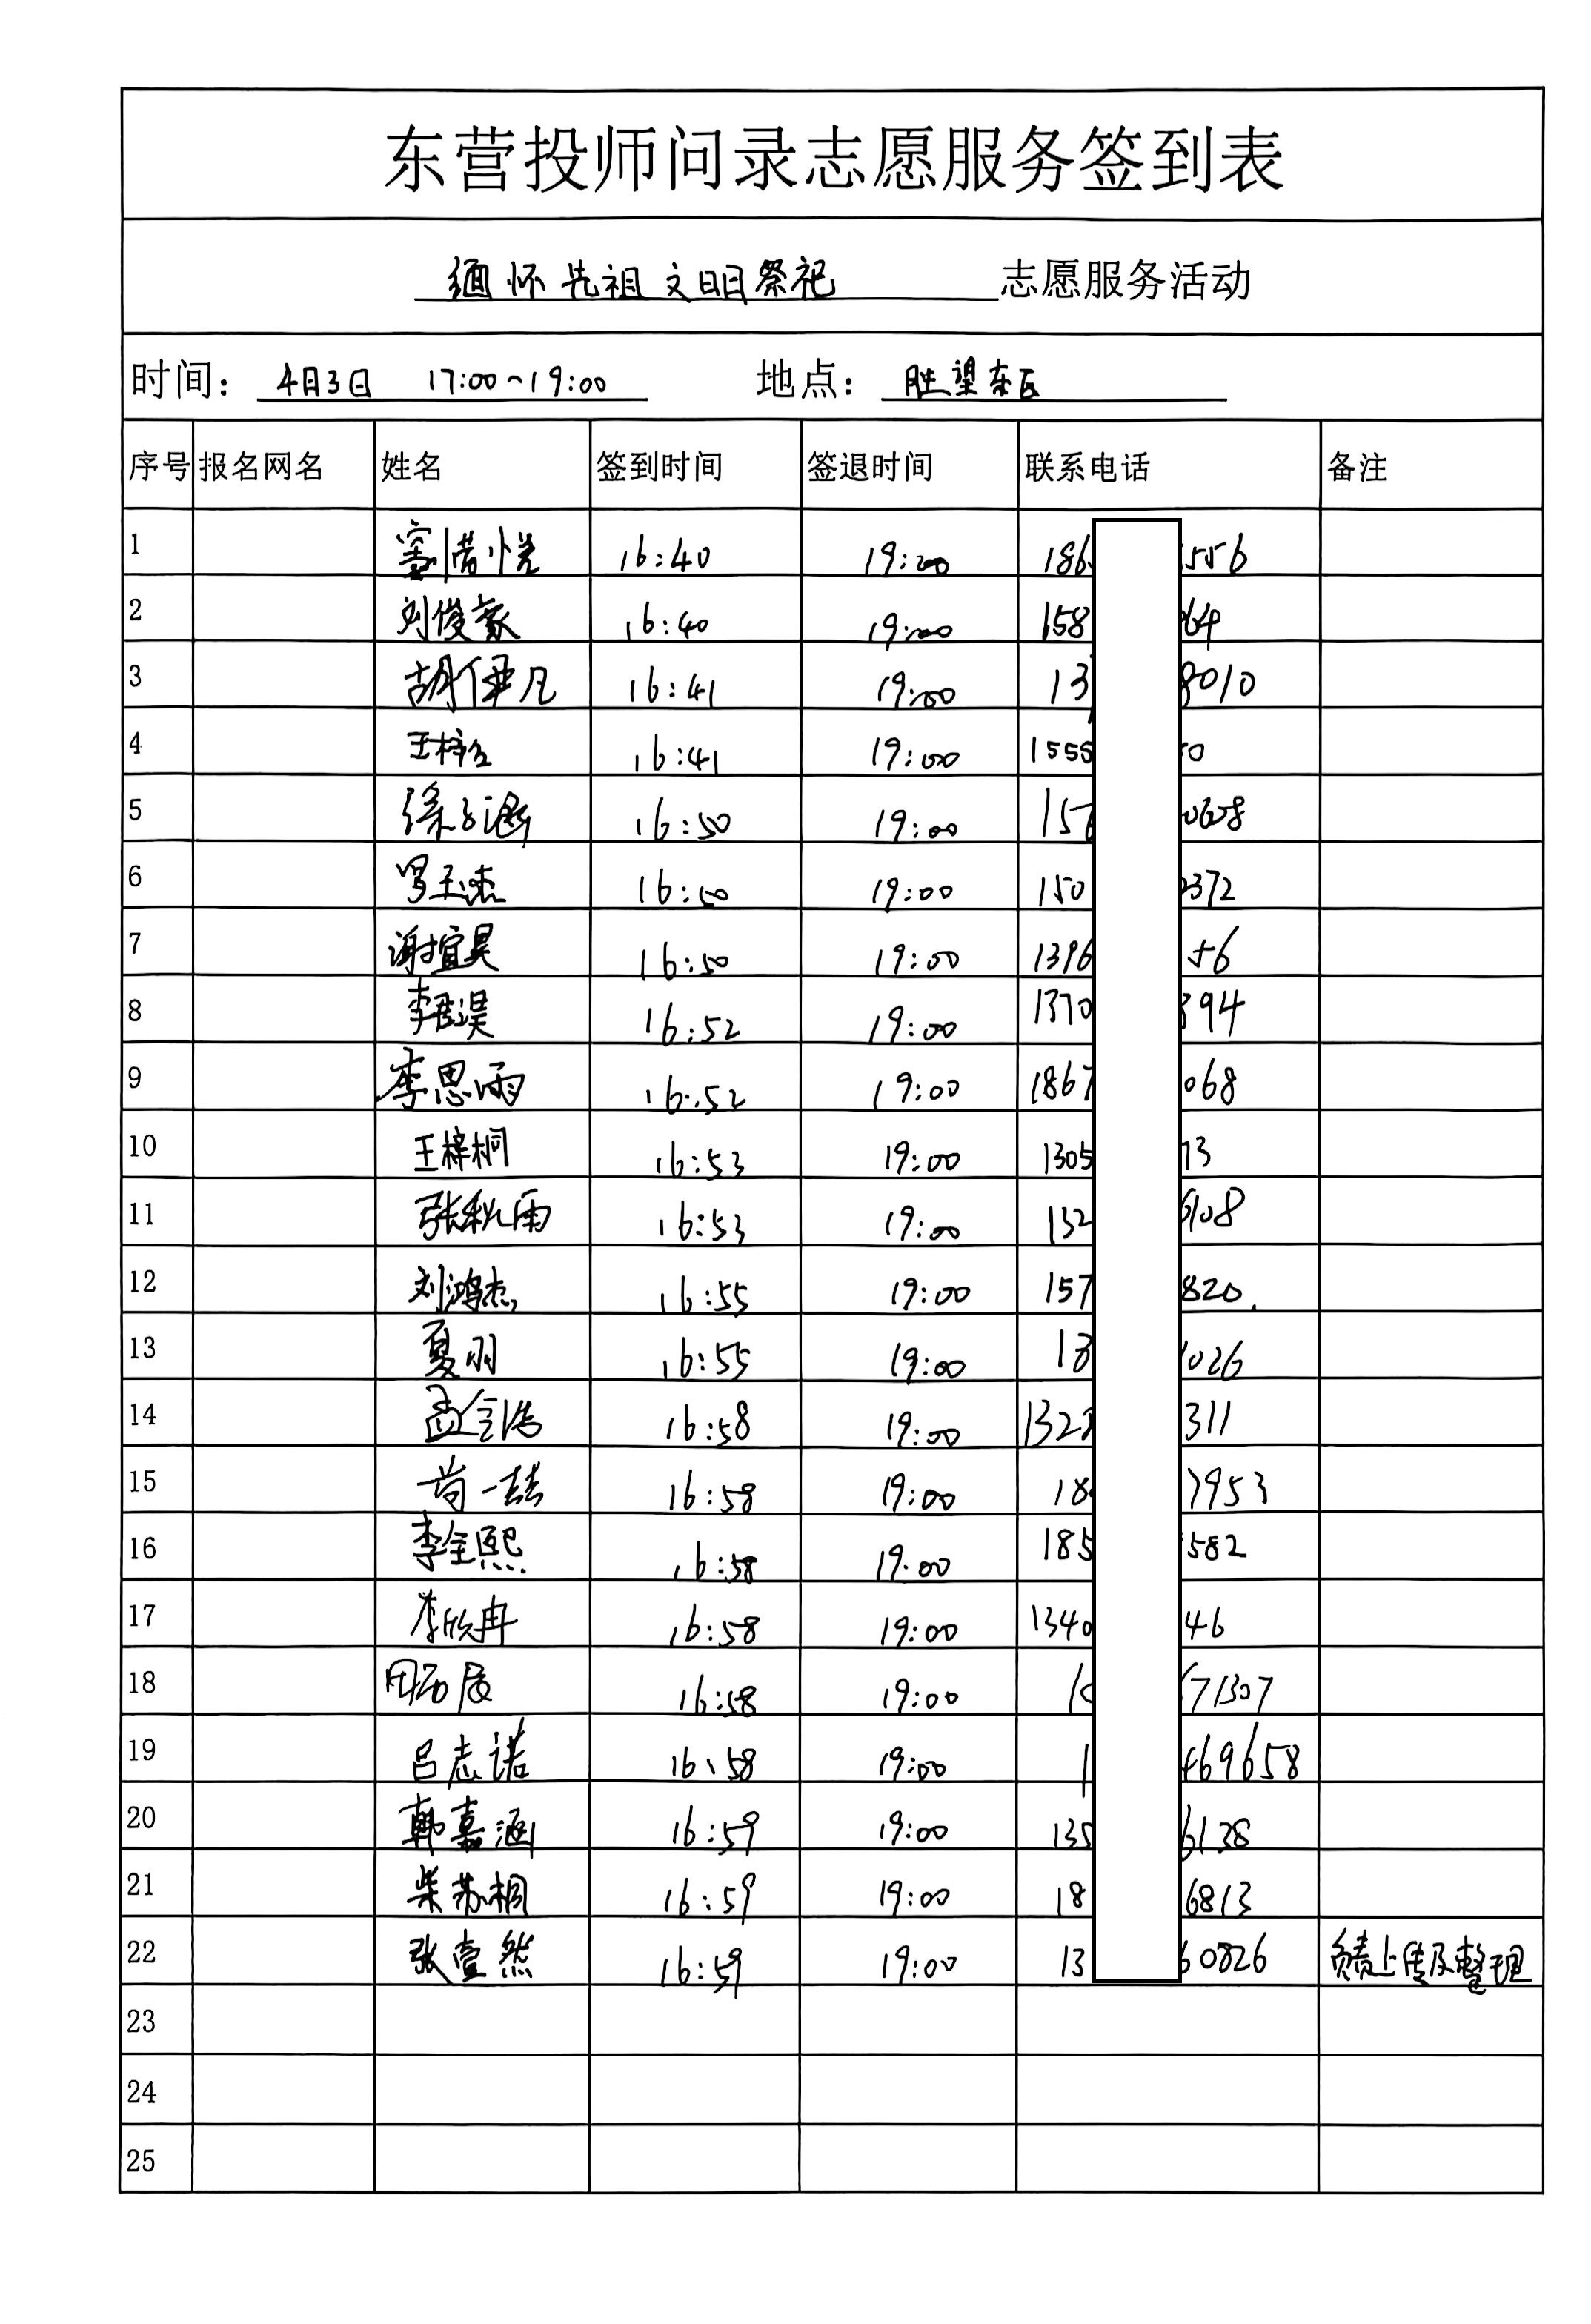 东营投师问录志愿服务签到表
缅怀先祖 文明祭祀 志愿服务活动
时间: 4月3日 17:00~19:00 地点: 胜望东区
序号 报名网名 姓名 签到时间 签退时间 联系电话 备注
1 窦惜悦 16:40 19:00 186 556
2 刘俊豪 16:40 19:00 158 64
3 胡伊凡 16:41 19:00 13 8010
4 16:41 19:00 1555 0
5 徐子涵 16:50 19:00 15 0608
6 罗玉杰 16:50 19:00 150 2372
7 谢宜昊 16:50 19:00 1396 56
8 李君昊 16:52 19:00 1370 394
9 李思雨 16:52 19:00 1867 068
10 王梓桐 16:53 19:00 1305 13
11 张秋雨 16:53 19:00 132 6108
12 刘鸿杰 16:55 19:00 157 820
13 夏羽 16:55 19:00 18 1026
14 孟令浩 16:58 19:00 132 311
15 尚一喆 16:58 19:00 18 7953
16 李金熙 16:58 19:00 185 582
17 李欣冉 16:58 19:00 1340 46
18 16:58 19:00 1 71307
19 吕志诺 16:58 19:00 1 469658
20 韩嘉涵 16:59 19:00 135 6138
21 柴苏桐 16:59 19:00 18 6813
22 张壹然 16:59 19:00 13 60826 负责上传及整理
23
24
25